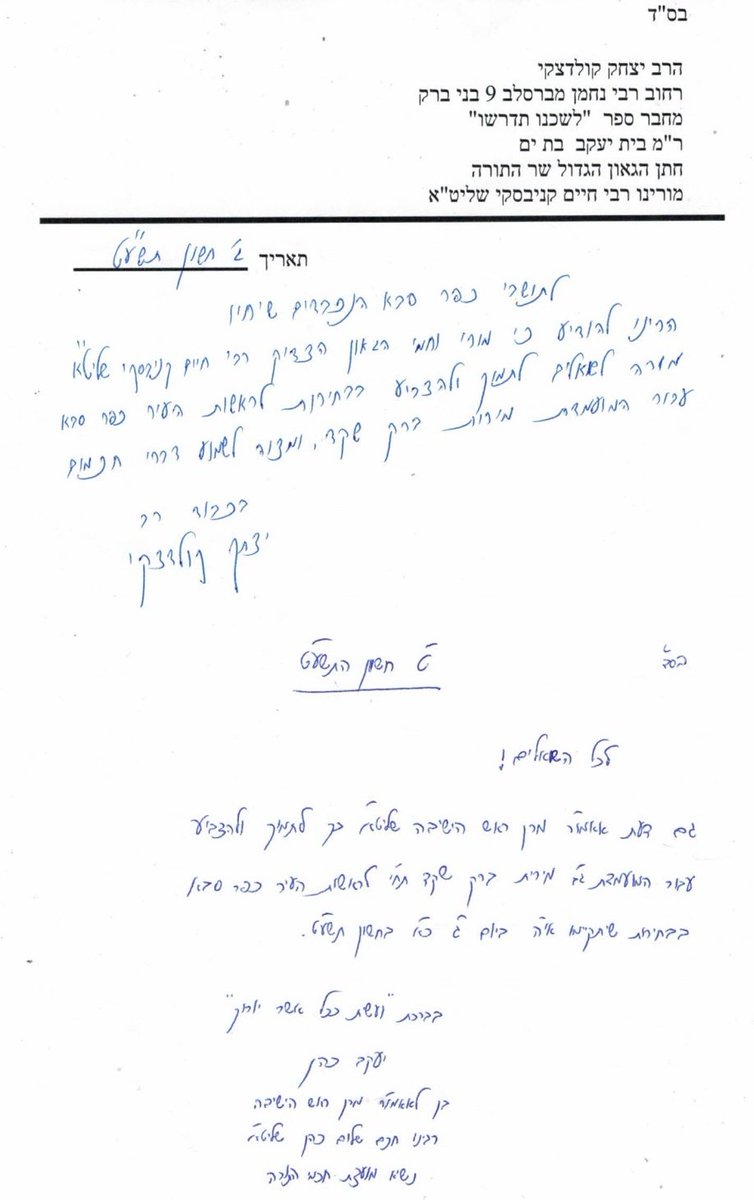 בס"ד
הרב יצחק קולדצקי
רחוב רבי נחמן מברסלב 9 בני ברק
מחבר ספר "לשכנו תדרשו"
ר"מ בית יעקב בת ים
חתן הגאון הגדול שר התורה
מורינו רבי חיים קניבסקי שליט"א
תאריך ב' חשון תשע"ט
לתושבי כפר סבא הנכבדים שיחיו
הרינו להודיע כי מורי וחמי הגאון הצדיק רבי חיים קניבסקי שליט"א
מורה לשואלים לתמוך ולהצביע בבחירות לראשות העיר כפר סבא
עבור המועמדת מירית ברק שקד, ומצוה לשמוע דברי חכמים
בכבוד רב
יצחק קולדצקי
בס"ד
ט' חשון התשע"ט
לכל השואלים!
גם דעת אאמו"ר מרן ראש הישיבה שליט"א כך לתמוך ולהצביע
עבור המועמדת גב' מירית ברק שקד תחי' לראשות העיר כפר סבא
בבחירות שיתקיימו אי"ה ביום ג' כ"א בחשון תשע"ט.
בברכת "ועשת ככל אשר יורוך"
יעקב כהן
בן לאאמו"ר מרן ראש הישיבה
רבינו חכם שלום כהן שליט"א
נשיא מועצת חכמי התורה